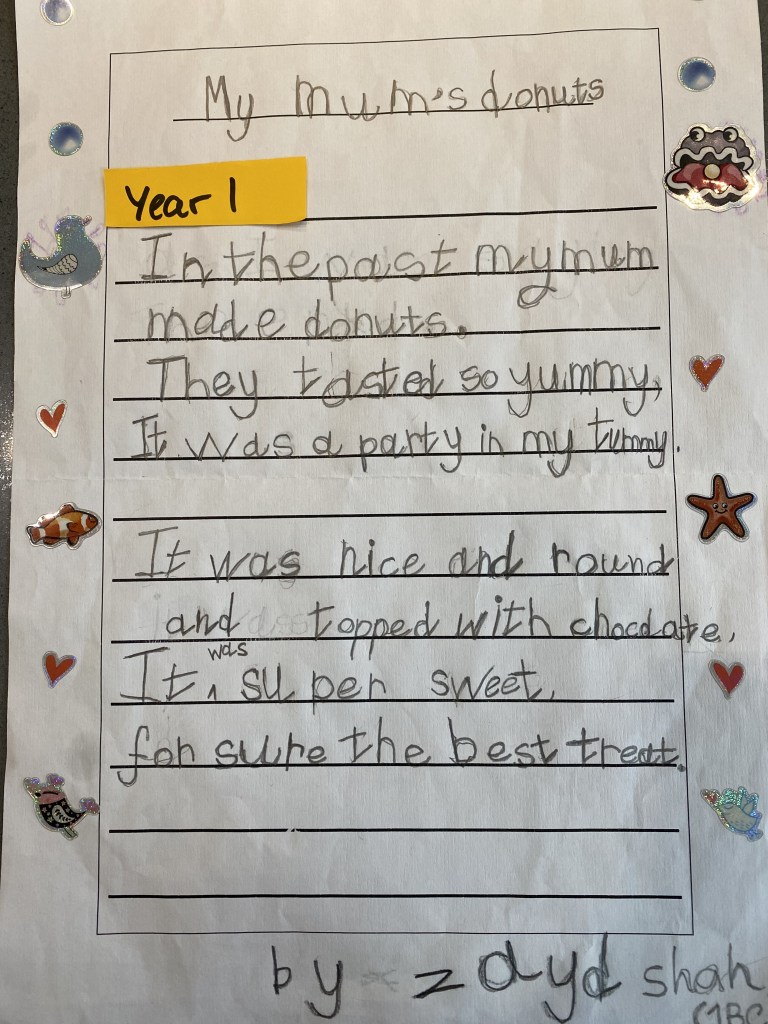 My Mum's donuts
Year 1
In the past my mum
made donuts.
They tasted so yummy,
It was a party in my tummy.
It was nice and round
and topped with chocolate,
It was super sweet,
for sure the best treat.
by zayd shah
(1BC